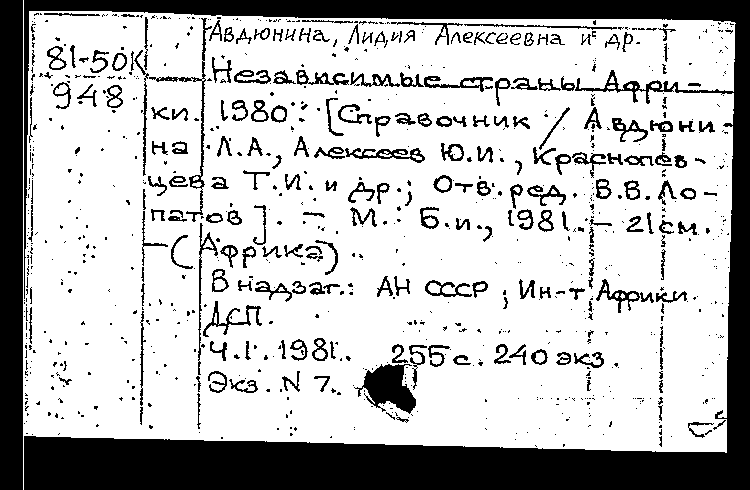 Авдюнина, Лидия Алексеевна и др.
81-50К
948
Независимые страны Афри-
ки. 1980. [Справочник / Авдюни-
на Л.А., Алексеев Ю.И., Краснопев-
цева Т.И. и др.; Отв. ред. В.В. Ло-
патов]. - М.: Б.и., 1981. - 21см.
- (Африка).
В надзаг.: АН СССР, Ин-т Африки.
ДСП.
Ч.I. 1981. 255 с. 240 экз.
Экз. N 7.